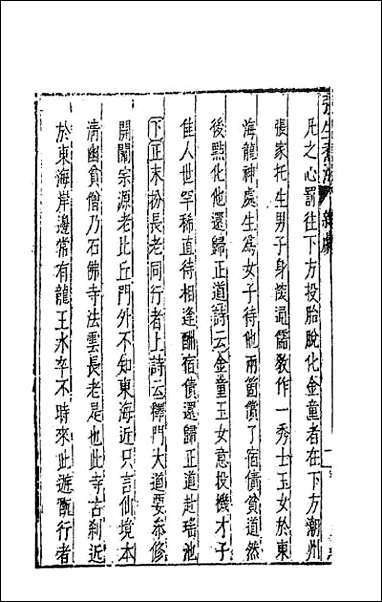 張生煮海 雜劇
凡之心罰往下方投胎脫化金童者在下方潮州
張家托生男子身深通儒教作一秀士玉女於東
海龍神處生為女子待他兩箇償了宿債貧道然
後點化他還歸正道詩云金童玉女意投機才子
佳人世罕稀直待相逢酬宿債還歸正道赴瑤池
下正末扮長老同行者上詩云釋門大道要叅修
開闡宗源老比丘門外不知東海近只言仙境本
清幽貧僧乃石佛寺法雲長老是也此寺古剎近
於東海岸邊常有龍王水卒不時來此遊翫行者